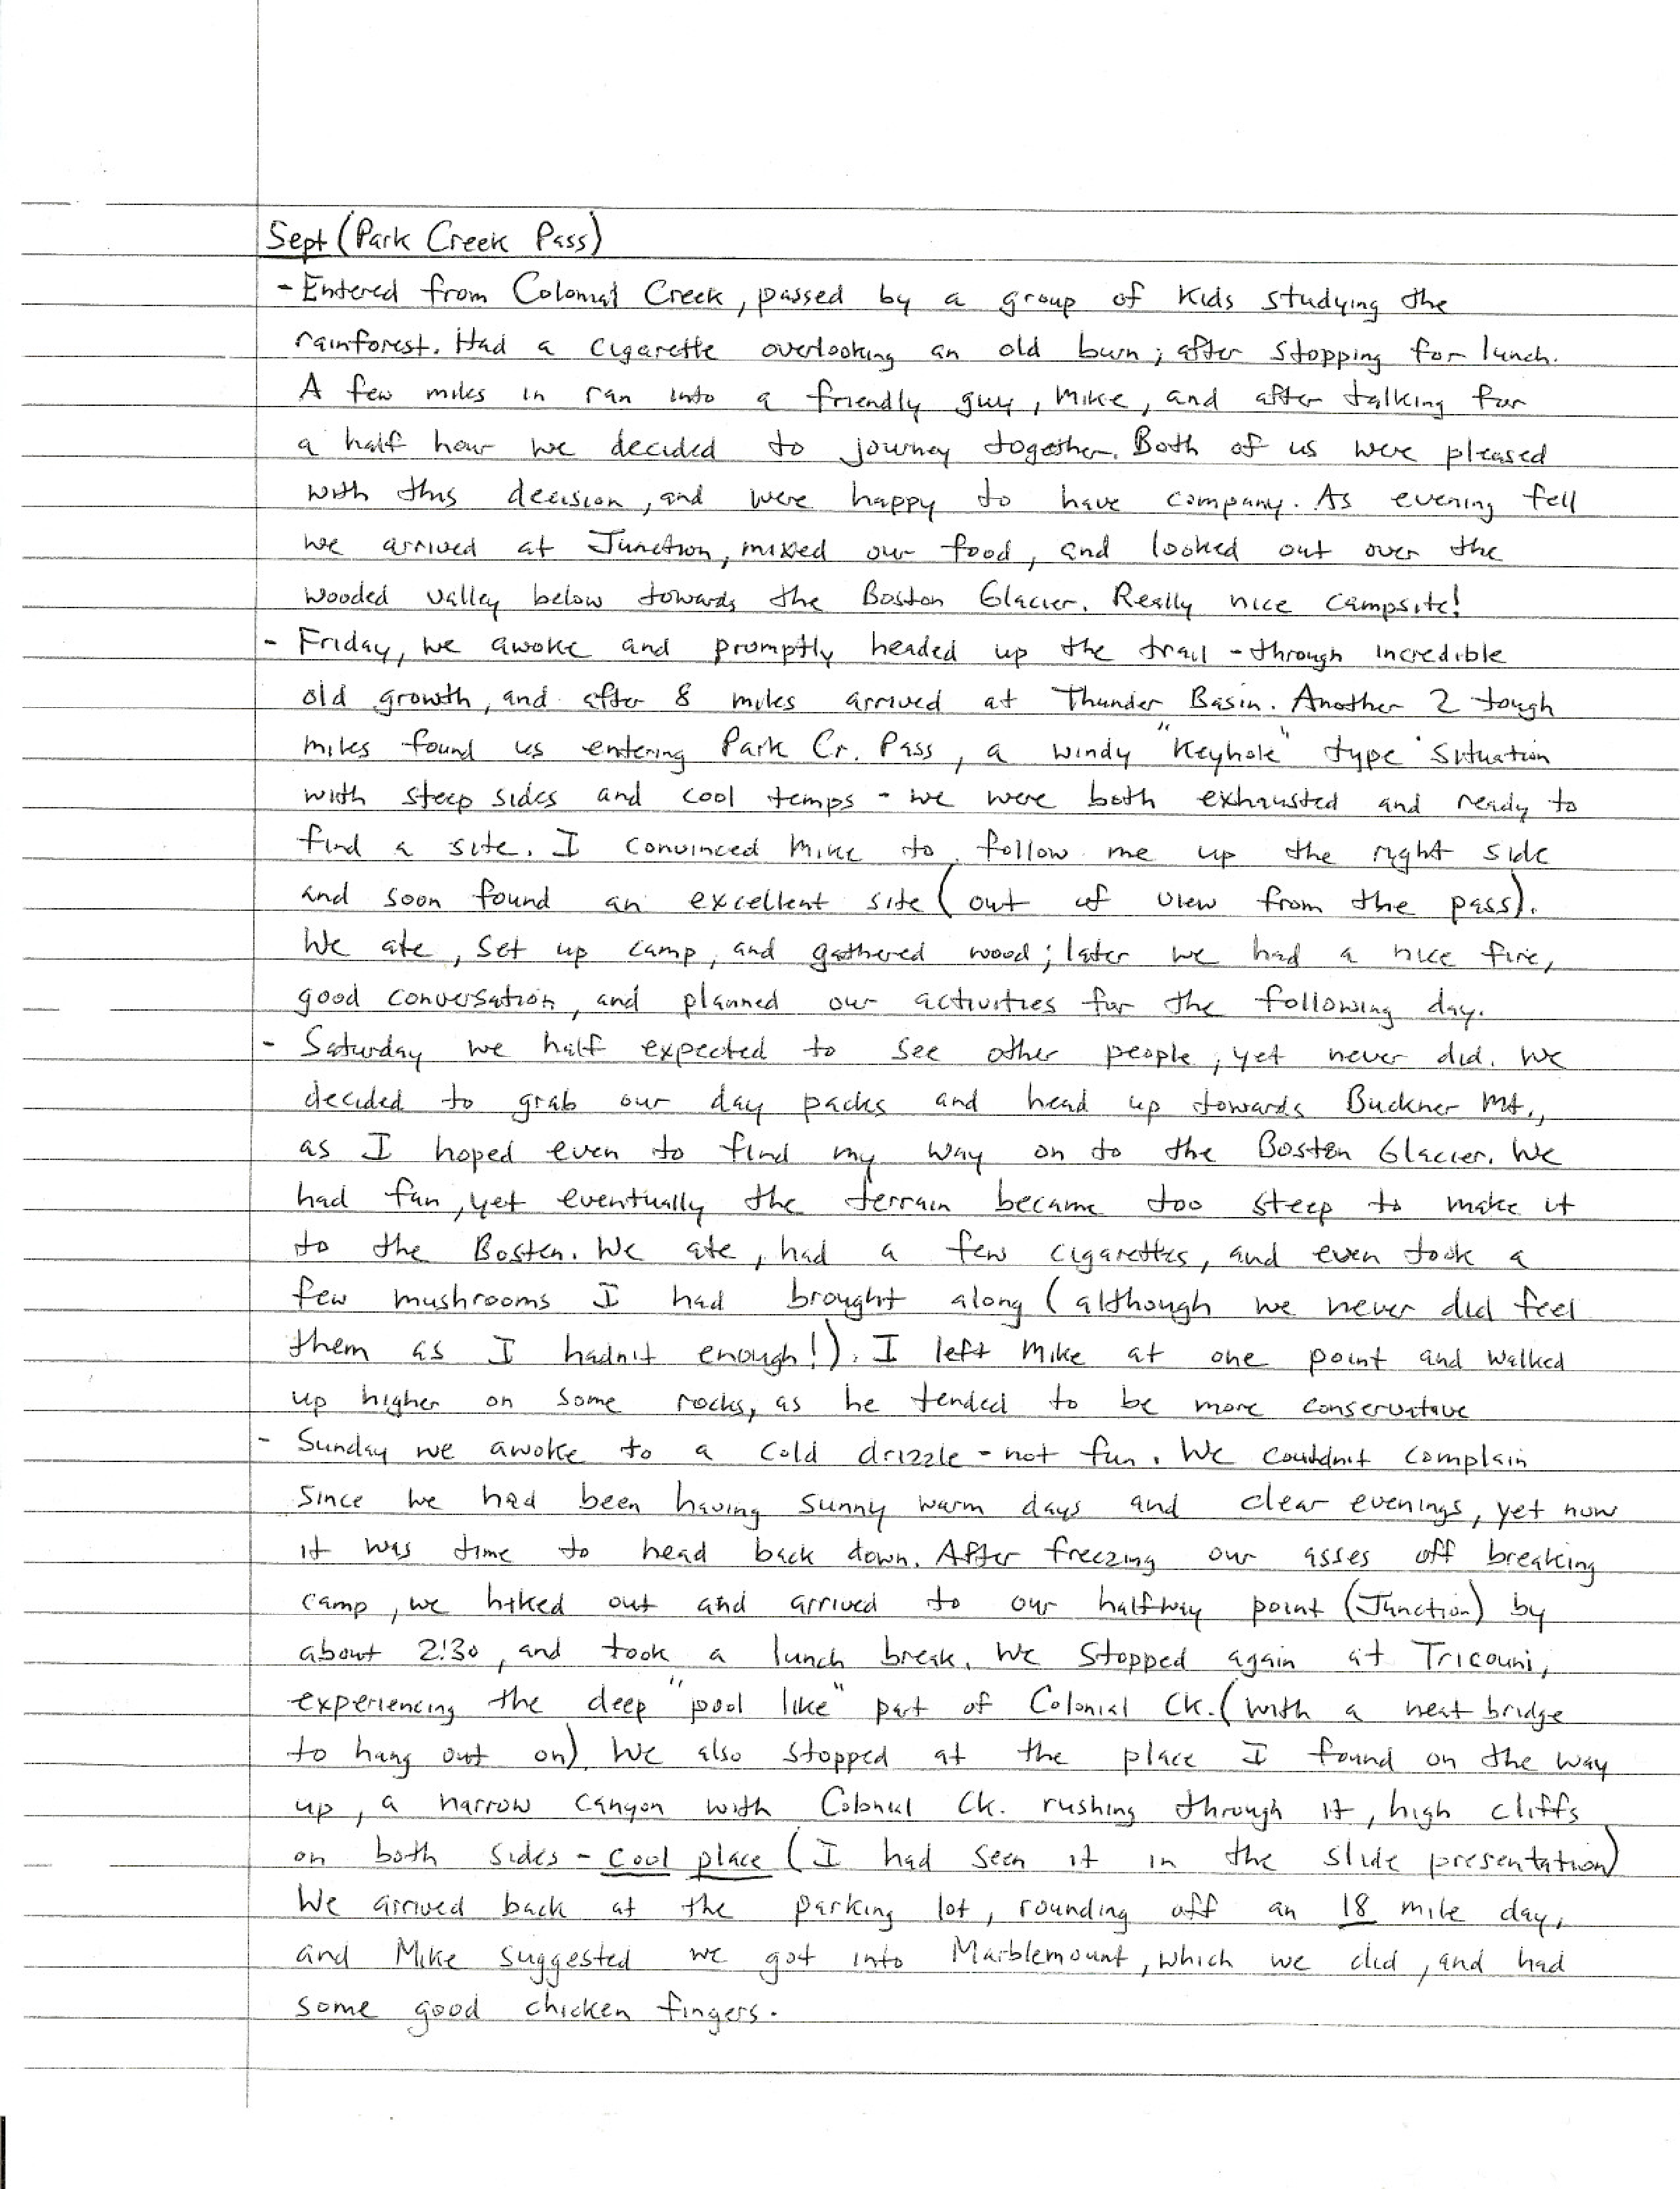 Sept (Park Creek Pass)
- Entered from Colonial Creek, passed by a group of kids studying the
rainforest. Had a cigarette overlooking an old burn; after stopping for lunch.
A few miles in ran into a friendly guy, Mike, and after talking for
a half hour we decided to journey together. Both of us were pleased
with this decision, and were happy to have company. As evening fell
we arrived at Junction, mixed our food, and looked out over the
wooded valley below towards the Boston Glacier. Really nice campsite!
- Friday, we awoke and promptly headed up the trail - through incredible
old growth, and after 8 miles arrived at Thunder Basin. Another 2 tough
miles found us entering Park Cr. Pass, a windy "Keyhole" type situation
with steep sides and cool temps - we were both exhausted and ready to
find a site. I convinced Mike to follow me up the right side
and soon found an excellent site (out of view from the pass).
We ate, set up camp, and gathered wood; later we had a nice fire,
good conversation, and planned our activities for the following day.
- Saturday we half expected to see other people, yet never did. We
decided to grab our day packs and head up towards Buckner Mt.,
as I hoped even to find my way on to the Boston Glacier. We
had fun, yet eventually the terrain became too steep to make it
to the Boston. We ate, had a few cigarettes, and even took a
few mushrooms I had brought along (although we never did feel
them as I hadn't enough!). I left Mike at one point and walked
up higher on some rocks, as he tended to be more conservative
- Sunday we awoke to a cold drizzle - not fun. We couldn't complain
since we had been having sunny warm days and clear evenings, yet now
it was time to head back down. After freezing our asses off breaking
camp, we hiked out and arrived to our halfway point (Junction) by
about 2:30, and took a lunch break. We stopped again at Tricouni,
experiencing the deep "pool like" part of Colonial Ck. (with a neat bridge
to hang out on). We also stopped at the place I found on the way
up, a narrow canyon with Colonial Ck. rushing through it, high cliffs
on both sides - cool place (I had seen it in the slide presentation)
We arrived back at the parking lot, rounding off an 18 mile day,
and Mike suggested we got into Marblemount, which we did, and had
some good chicken fingers.